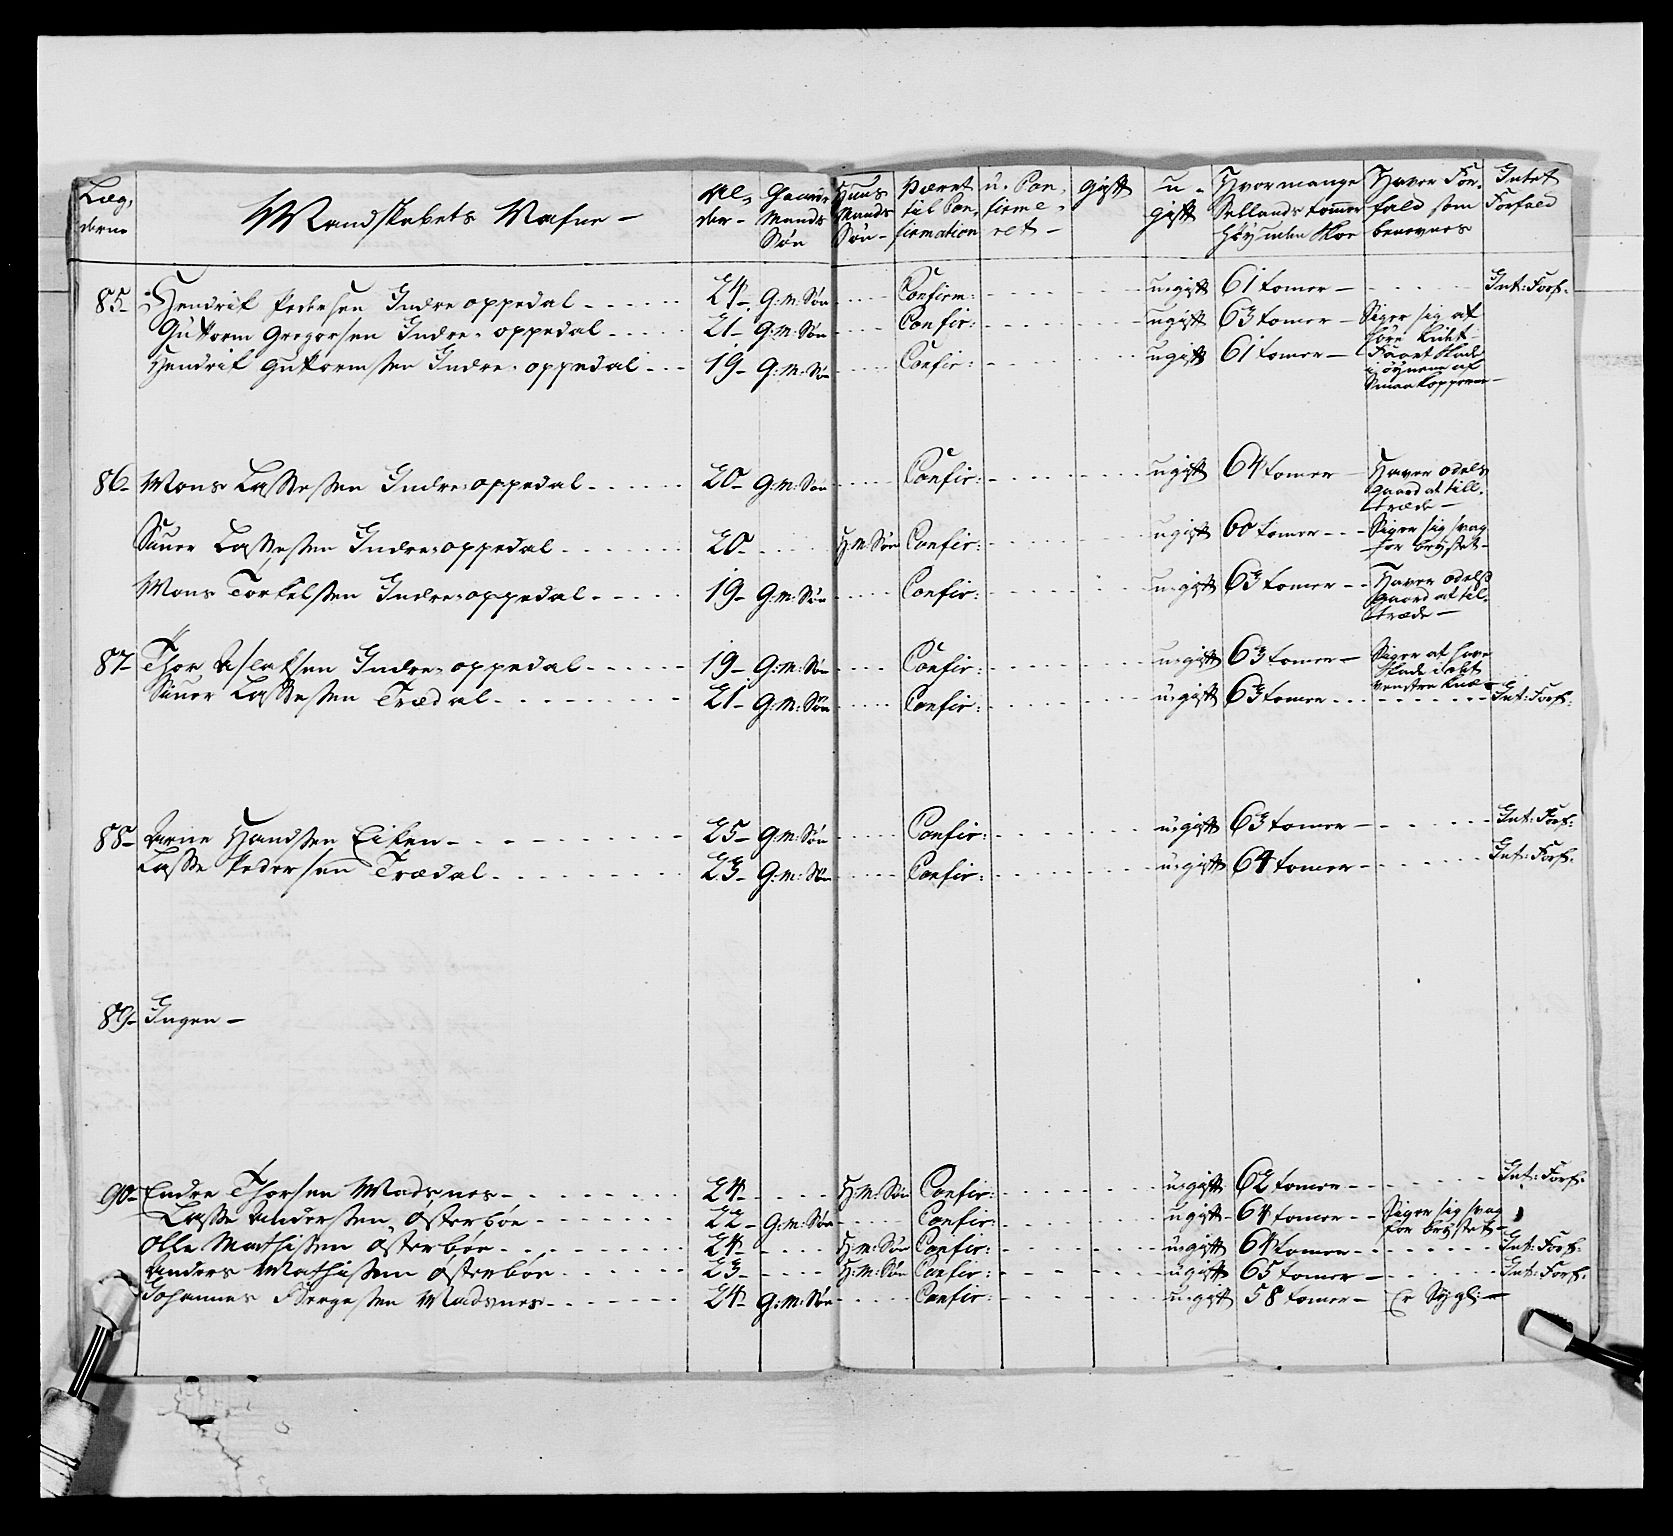 Læg, derne | Mandskabets Nafne – | Al- der – | Gaard Mands Søn | Huus Mands Søn – | Været til Con- firmation | u- Con- firme- ret – | gift | u- gift | Hvormange Sællands tommer Höy uden Skoe | Haver For- fald som benevnes | Intet Forfald
85- Hendrik Pedersen Indre oppedal - - - 24- G:M: Søn - - - Confirm: - - - u-gift 61 tomer – - - - Int: Forf:
Guttorm Gregorsen Indre-oppedal - - - 21- G:M: Søn - - - Confir: - - - ugift 63 tomer – Siger sig at høre lidet
Hendrik Guttormssen Indre-oppedal - - - 19- G:M: Søn - - - Confir: - - - ugift 61 tomer – Faaet Skade i øynene af Smaakopperne –
86- Mons Lassessen Indre-oppedal - - - 20- G:M: Søn - - - Confir: - - - ugift 64 tomer – Haver odels gaard at till- træde –
Siuer Lassessen Indre-oppedal - - - 20- - - - H:M: Søn Confir: - - - ugift 60 tomer - - Siger sig svag for brystet –
Mons Torkelssen Indre-oppedal - - - 19- G:M: Søn - - - Confir: - - - u-gift 63 tomer - - Haver odels gaard at til- træde –
87- Thor Aslaksen Indre-oppedal - - - 19- G:M: Søn - - - Confir: - - - u-gift 63 tomer – Siger at have Skade i det venstre knæ –
Siuer Lassessen Trædal - - - 21- G:M: Søn - - - Confir: - - - u-gift 63 tomer - - - Int: Forf:
88- Arne Handssen Eiken - - - 25- G:M: Søn - - - Confir: - - - u-gift 63 tomer - - - Int: Forf:
Lasse Pedersen Trædal - - - 23- G:M: Søn - - - Confir: - - - u-gift 64 tomer - - - Int: Forf:
89- Ingen –
90- Endre Thorsen Madsnes - - - 24- - - - H:M: Søn Confir: - - - u-gift 62 tomer - - - Int: Forf:
Lasse Anderssen østerbøe - - - 22- G:M: Søn - - - Confir: - - - ugift- 64 tomer - - Siger sig svag for brystet –
olle Mathissen østerbøe - - - 24- - - - H:M: Søn Confir: - - - u-gift 64 tomer - - - Int: Forf:
Anders Mathissen østerbøe - - - 23- - - - H:M: Søn Confir: - - - ugift 65 tomer – - - - Int: Forf:
Johannes Børgessen Madsnes - - - 24- G:M: Søn - - - Confir: - - - u-gift 58 tomer – Er Sygl: –